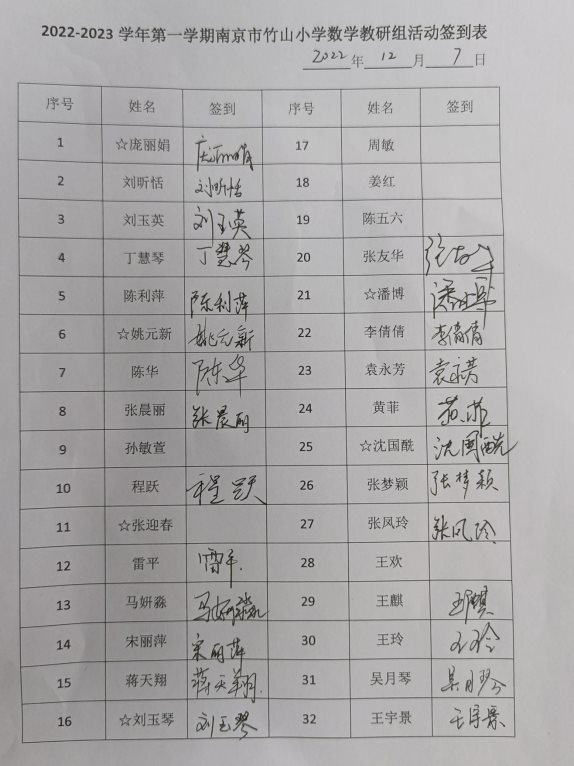 2022-2023 学年第一学期南京市竹山小学数学教研组活动签到表
2022 年 12 月 7 日
序号 姓名 签到 序号 姓名 签到
1 ☆庞丽娟 庞丽娟 17 周敏
2 刘昕恬 刘昕恬 18 姜红
3 刘玉英 刘玉英 19 陈五六
4 丁慧琴 丁慧琴 20 张友华 张友华
5 陈利萍 陈利萍 21 ☆潘博 潘博
6 ☆姚元新 姚元新 22 李倩倩 李倩倩
7 陈华 陈华 23 袁永芳 袁永芳
8 张晨丽 张晨丽 24 黄菲 黄菲
9 孙敏萱 25 ☆沈国酰 沈国酰
10 程跃 程跃 26 张梦颖 张梦颖
11 ☆张迎春 27 张凤玲 张凤玲
12 雷平 雷平 28 王欢
13 马妍淼 马妍淼 29 王麒 王麒
14 宋丽萍 宋丽萍 30 王玲 王玲
15 蒋天翔 蒋天翔 31 吴月琴 吴月琴
16 ☆刘玉琴 刘玉琴 32 王宇景 王宇景